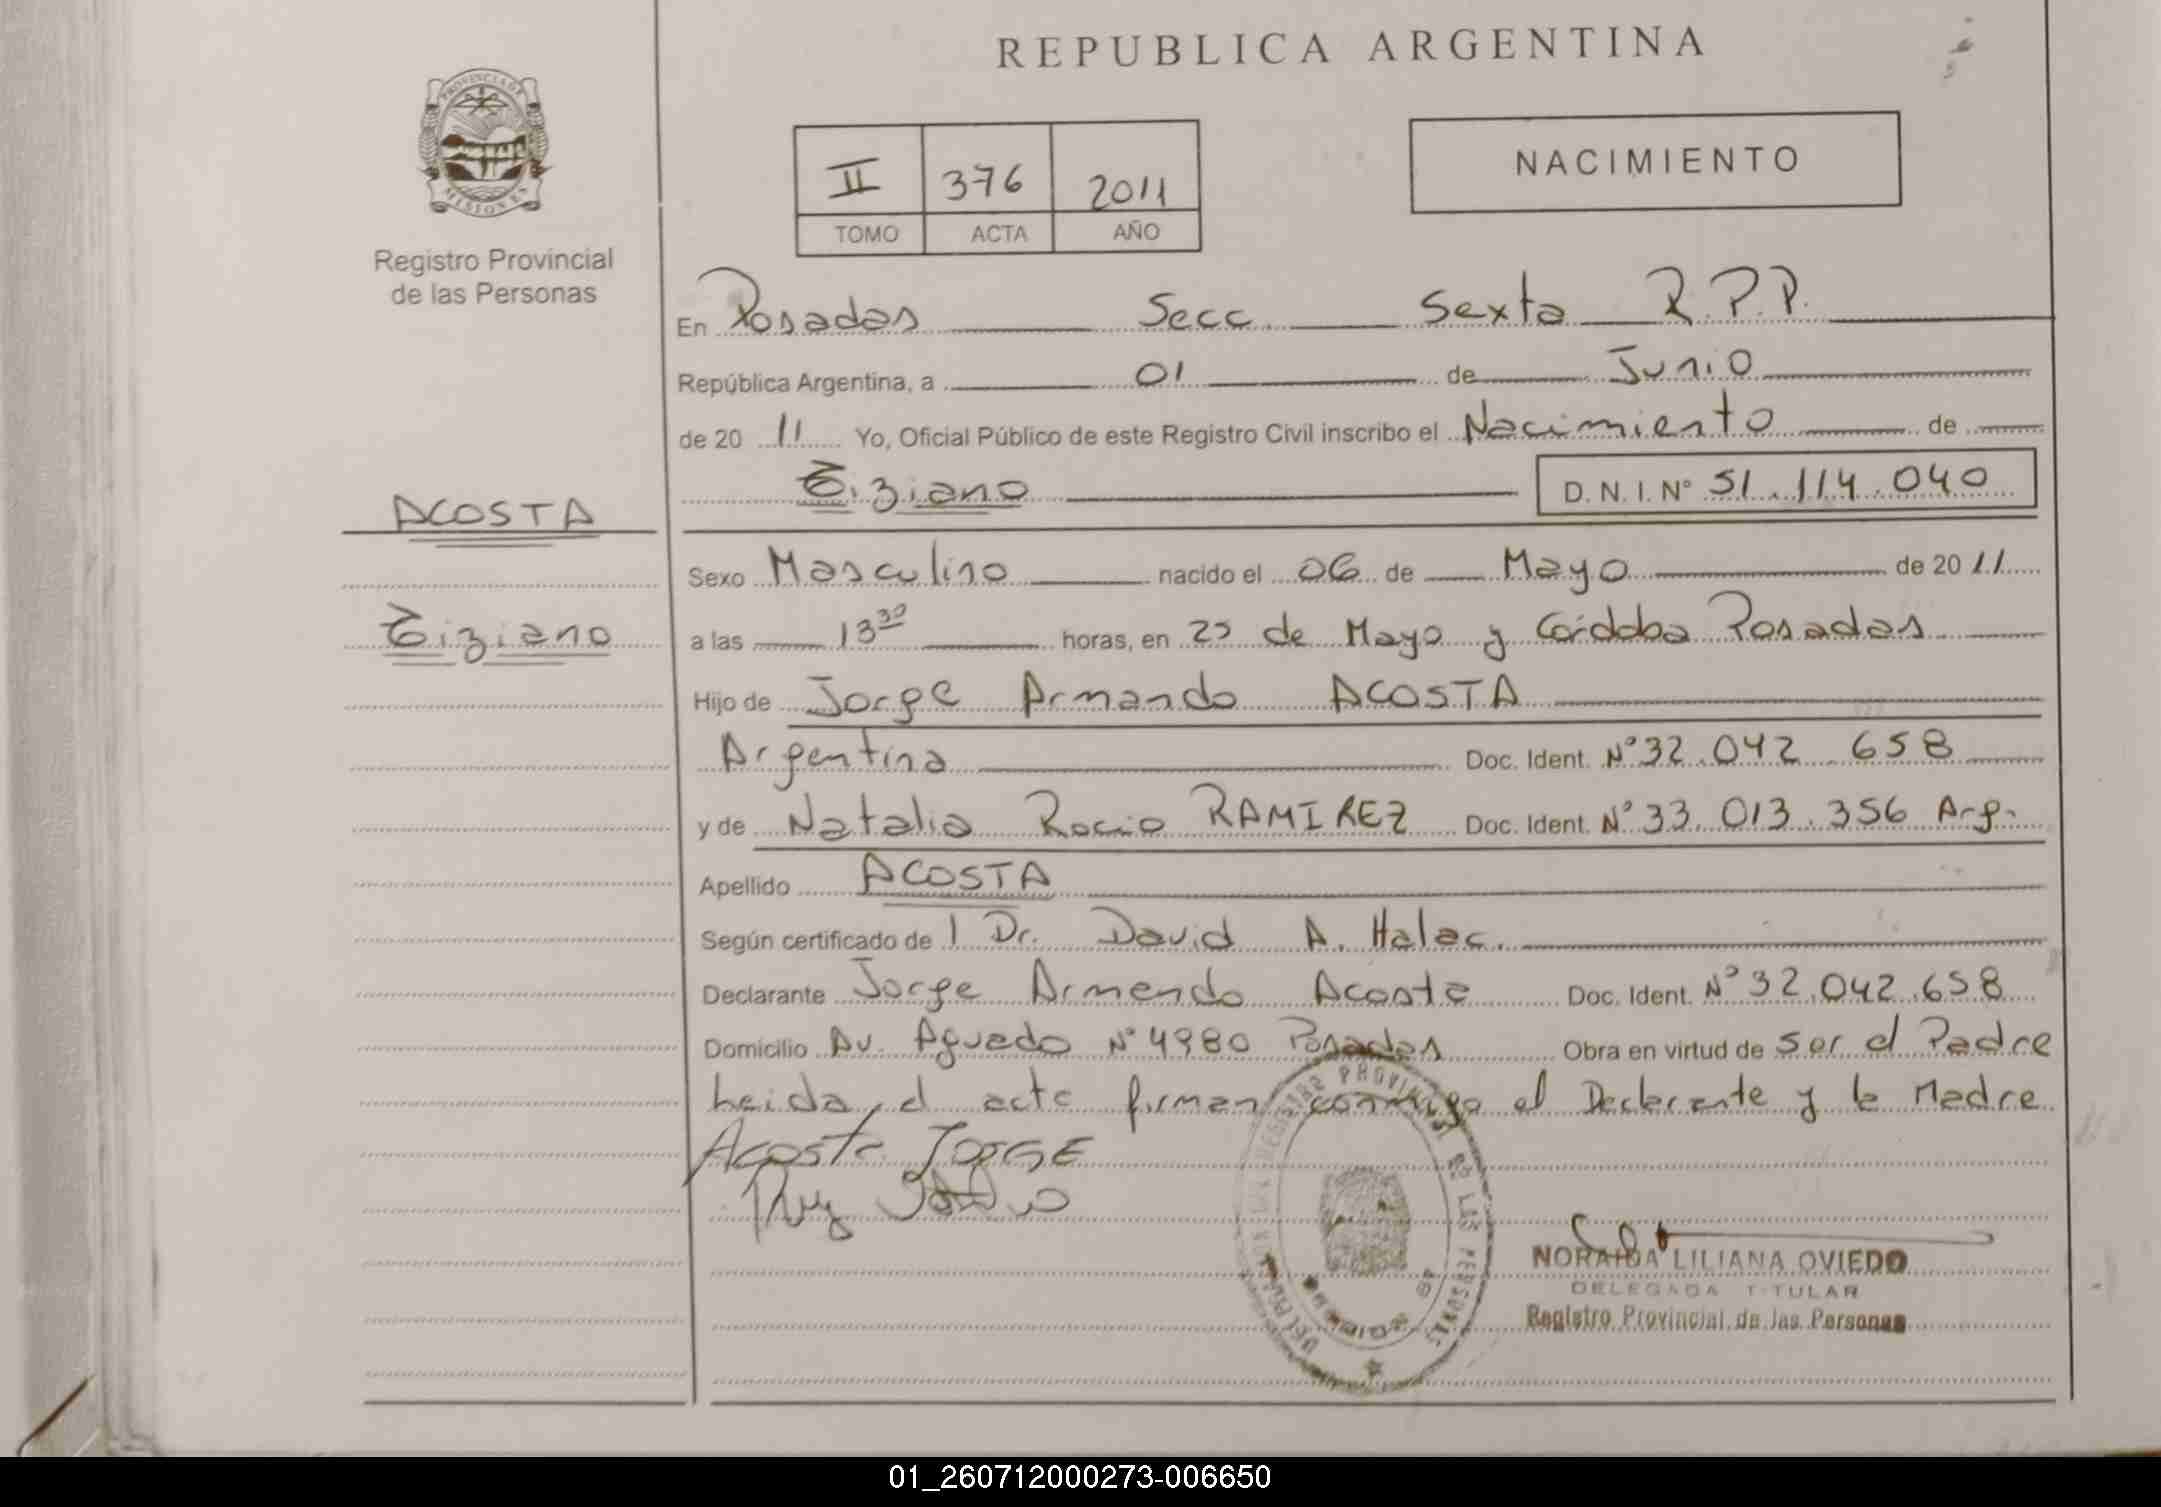 REPUBLICA ARGENTINA
PROVINCIA DE MISIONES
Registro Provincial
de las Personas
II 376 2011
TOMO ACTA AÑO
NACIMIENTO
En Posadas Secc. Sexta R.P.P.
República Argentina, a 01 de Junio
de 20 11 Yo, Oficial Público de este Registro Civil inscribo el Nacimiento de
Tiziano D.N.I. Nº 51.114.040
ACOSTA
Sexo Masculino nacido el 06 de Mayo de 20 11
Tiziano
a las 13 30 horas, en 25 de Mayo y Córdoba Posadas
Hijo de Jorge Armando ACOSTA
Argentina Doc. Ident. Nº 32.042.658
y de Natalia Rocio RAMIREZ Doc. Ident. Nº 33.013.356 Arg.
Apellido ACOSTA
Según certificado de l Dr. David A. Halac.
Declarante Jorge Armando Acosta Doc. Ident. Nº 32.042.658
Domicilio Av. Aguado Nº 4980 Posadas Obra en virtud de ser el Padre
Leida el acta firman conmigo el Declarante y la Madre
Acosta JORGE
REGISTRO PROVINCIAL DE LAS PERSONAS
NORAIDA LILIANA OVIEDO
DELEGADA TITULAR
Registro Provincial de las Personas
01_260712000273-006650